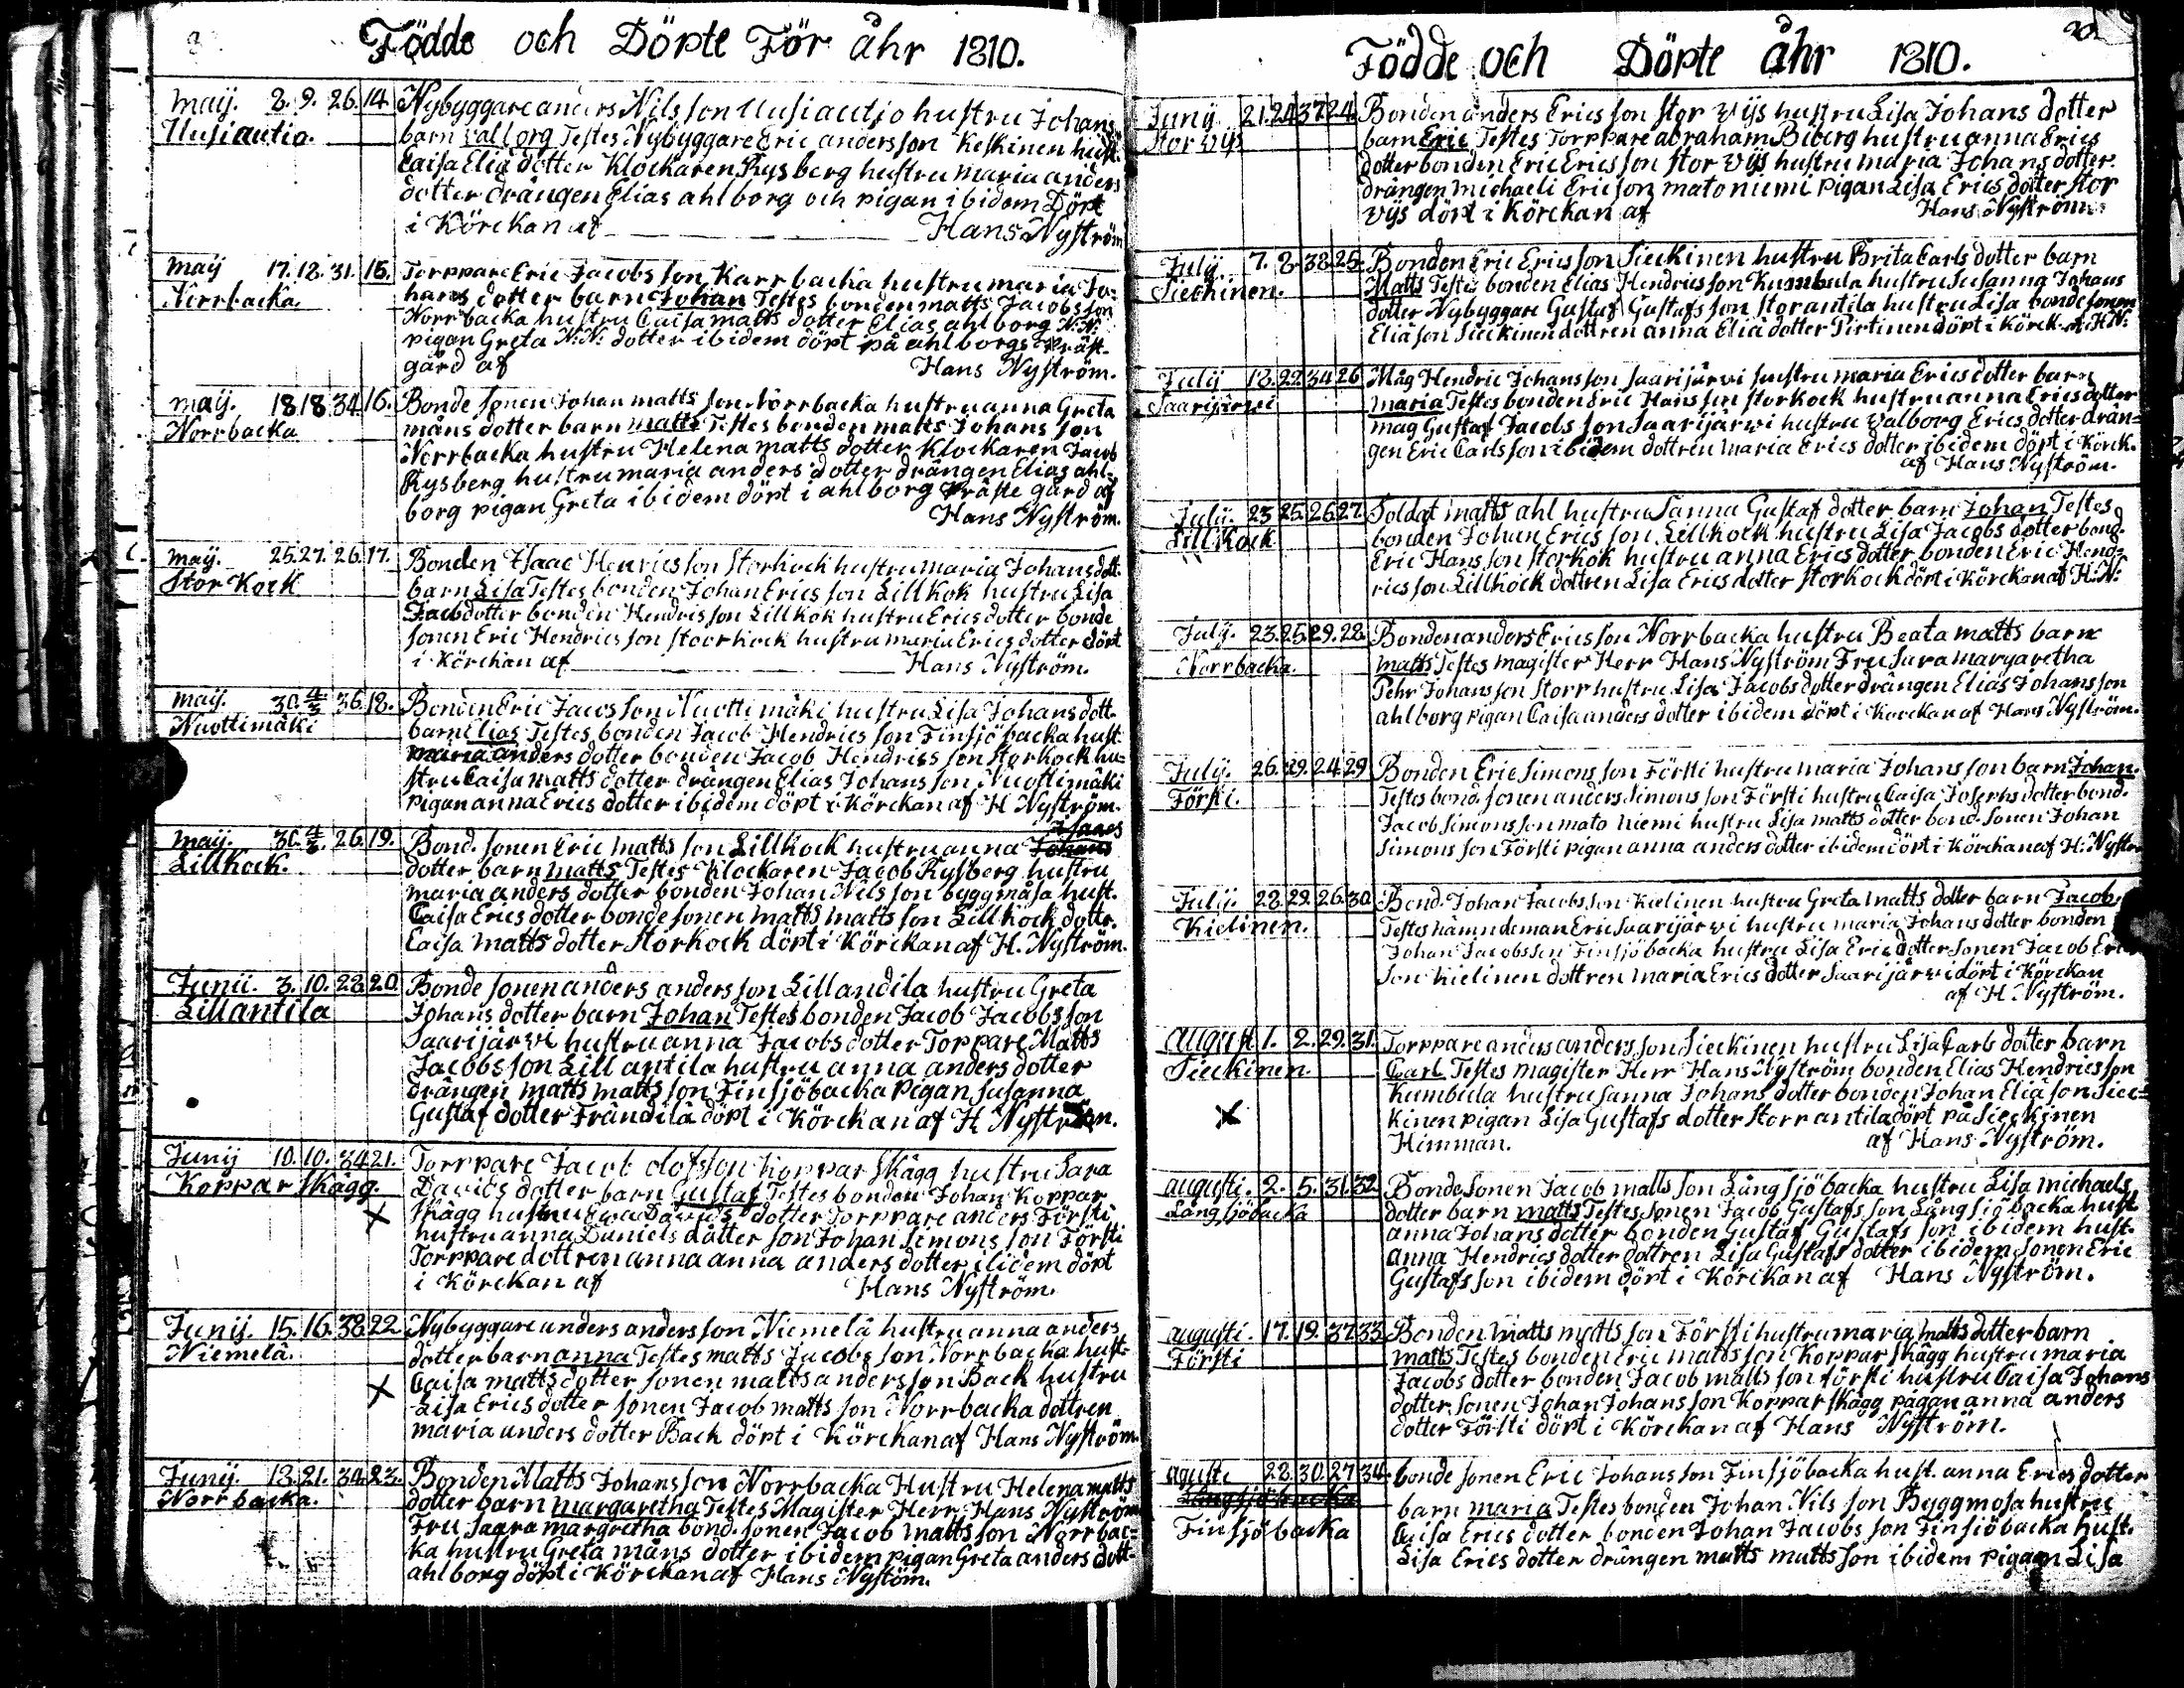 Födde och Döpte För åhr 1810.
Maij. 8. 9. 26. 14. Nybyggare anders Nils son Uusiautio hustru Johans
Uusiautio. barn valborg Testes Nybyggare Eric anders son Keskinen hust.
Caisa Elia dotter Klockaren Rysberg hustru maria anders
dotter drängen Elias ahlborg och pigan ibidem Döpt
i Körckan af Hans Nyström
maij 17. 18. 31. 15. Torppare Eric Jacobs son Karrbacka hustru maria Jo-
Norrbacka. hans dotter barn Johan Testes bonden matts Jacobs son
Norrbacka hustru Caisa matts dotter Elias ahlborg N:N:
pigan Greta N:N: dotter ibidem döpt på ahlborgs Präst-
gård af Hans Nyström.
maij. 18 18 34 16. Bonde sonen Johan matts son Norrbacka hustru anna Greta
Norrbacka måns dotter barn matts Testes bonden matts Johans son
Norrbacka hustru Helena matts dotter Klockaren Jacob
Rysberg hustru maria anders dotter drängen Elias ahl-
borg pigan Greta ibidem döpt i ahlborg Präste gård af
Hans Nyström.
maij. 25. 27. 26. 17. Bonden Isaac Henrics son Storkock hustru maria Johans dott.
Stor Kock barn Lisa Testes bonden Johan Erics son Lillkok hustru Lisa
Jacobdotter bonden Hendrisson Lillkok hustru Erics dotter bonde
sonen Eric Hendrics son Stoorkock hustru maria Erics dotter döpt
i Körckan af Hans Nyström.
maij. 30. 4/3 36. 18. Bonden Eric Jacos son Nuotti mäki hustru Lisa Johans dott.
Nuottimäki barn Elias Testes bonden Jacob Hendrics son Finsjö backa hust.
maria anders dotter bonden Jacob Hendriss son Storkock hu-
stru Caisa matts dotter drängen Elias Johans son Nuottimäki
pigan anna Erics dotter ibidem döpt i Körckan af H Nyström.
Isaacs
maij. 30. 4/3. 26. 19. Bond. sonen Eric matts son Lillkock hustru anna Johans
Lillkock. dotter barn matts Testes Klockaren Jacob Rysberg hustru
maria anders dotter bonden Johan Nils son byggmåsa hust.
Caisa Erics dotter bonde sonen matts matts son Lillkock dottr.
Caisa matts dotter Storkock döpt i Körckan af H. Nyström.
Junii. 3. 10. 28 20. Bonde sonen anders anders son Lillandila hustru Greta
Lillantila Johans dotter barn Johan Testes bonden Jacob Jacobs son
Saarijärvi hustru anna Jacobs dotter Torpare Matts
Jacobs son Lill antila hustru anna anders dotter
drängen matts matts son Finsjöbacka Pigan Susanna
Gustaf dotter Frandila döpt i Körckan af H Nyström.
Junij 10. 10. 34 21. Torppare Jacob olofsson Koppar skägg hustru Sara
Koppar skägg. Davids dotter barn Gustaf Testes bonden Johan Koppar
skägg hustru Ewa Davids dotter Torppare anders Försti
hustru anna Daniels dotter son Johan Simons son Försti
Torppare dottren anna anna anders dotter ibidem döpt
i Körckan af Hans Nyström.
Junij. 15. 16. 38 22. Nybyggare anders anders son Niemelä hustru anna anders
Niemelä. dotter barn anna Testes matts Jacobs son Norrbacka hust.
Caisa matts dotter sonen matts anders son Back hustru
Lisa Erics dotter sonen Jacob matts son Norrbacka dottren
maria anders dotter Back döpt i Körckan af Hans Nyström.
Junij. 13. 21. 34. 23. Bonden Matts Johans son Norrbacka Hustru Helena matts
Norrbacka. dotter barn margaretha Testes Magister Herr Hans Nyström
Fru Saara margretha bond. sonen Jacob matts son Norrbac-
ka hustru Greta måns dotter ibidem pigan Greta anders dott-
ahlborg döpt i Körckan af Hans Nyström.
Födde och Döpte åhr 1810.
Junij 21. 24 37. 24. Bonden anders Erics son Stor Vijs hustru Lisa Johans dotter
Stor vijs barn Eric Testes Torppare abraham Biberg hustru anna Erics
dotter bonden Eric Erics son Stor Vijs hustru maria Johans dotter.
drängen michaeli Ericson matoniemi pigan Lisa Erics dotter Stor
vijs döpt i Körckan af Hans Nyström.
Julij 7. 8. 38. 25. Bonden Eric Erics son Sieckinen hustru Brita Carls dotter barn
Sieckinen. Matts Testes bonden Elias Hendrics son Kumbula hustru Susanna Johans
dotter Nybyggare Gustaf Gustafs son Storantila hustru Lisa bonde sonen
Eliä son Sieckinen dottren anna Eliä dotter Pirtinen döpt i Körck. af H N:
Julij 18. 22. 34 26 Måg Hendric Johans son Saarijärvi hustru maria Erics dotter barn
Saarijärvi maria Testes bonden Eric Hans son Storkock hustru anna Erics dotter
måg Gustaf Jacobs son Saarijärwi hustru Valborg Erics dotter drän=
gen Eric Carls son ibidem dottren maria Erics dotter ibidem döpt i Körck.
af Hans Nyström.
Julij. 23 25. 26 27. Soldat matts ahl hustru Sanna Gustaf dotter barn Johan Testes
Lillkock bonden Johan Erics son Lillkock hustru Lisa Jacobs dotter bond.
Eric Hans son Storkok hustru anna Erics dotter bonden Eric Hend-
rics son Lillkock dottren Lisa Erics dotter Storkock döpt i Körckan af H:N:
Julij. 23. 25. 29. 28. Bonden anders Erics son Norrbacka hustru Beata matts barn
Norrbacka. matts Testes magister Herr Hans Nyström Fru Sara margaretha
Pehr Johans son Storr hustru Lisa Jacobs dotter drängen Elias Johans son
ahlborg pigan Caisa anders dotter ibidem döpt i Körckan af Hans Nyström.
Julij. 26. 29. 24. 29 Bonden Eric Simons son Försti hustru maria Johans son barn Johan.
Försti. Testes bond. sonen anders Simons son Försti hustru Caisa Josephs dotter bond.
Jacob Simons son mato niemi hustru Lisa matts dotter bond. sonen Johan
Simons son Försti pigan anna anders dotter ibidem döpt i Körckan af H: Nyström
Julij. 28. 29. 26. 30. Bond. Johan Jacobs son Kielinen hustru Greta matts dotter barn Jacob
Kielinen. Testes nämndeman Eric Saarijärvi hustru maria Johans dotter bonden
Johan Jacobs son Finsjöbacka hustru Lisa Erics dotter sonen Jacob Erics
son Kielinen dottren maria Erics dotter Saarijärvi döpt i Körckan
af H. Nyström.
August 1. 2. 29. 31. Torppare anders anders son Sieckinen hustru Lisa Carls dotter barn
Sieckinen. Carl Testes magister Herr Hans Nyström bonden Elias Hendrics son
Kumbula hustru Sanna Johans dotter bonden Johan Eliä son Siec=
kinen pigan Lisa Gustafs dotter Storrantila döpt på Sieckinen
Himman. af Hans Nyström.
augusti. 2. 5. 31. 32 Bonde sonen Jacob matts son Långsjöbacka hustru Lisa michaels
Långsjöbacka dotter barn matts Testes sonen Jacob Gustafs son Långsjöbacka hust
anna Johans dotter bonden Gustaf Gustafs son ibidem hust.
anna Hendrics dotter dottren Lisa Gustafs dotter ibidem sonen Eric
Gustafs son ibidem döpt i Körckan af Hans Nyström.
augusti. 17. 19. 37. 33. Bonden matts matts son Försti hustru maria matts dotter barn
Försti matts Testes bonden Eric matts son Koppar skägg hustru maria
Jacobs dotter bonden Jacob matts son försti hustru Caisa Johans
dotter sonen Johan Johans son Koppar skägg pigan anna anders
dotter Försti döpt i Körckan af Hans Nyström.
agusti 28. 30. 27 34. bonde sonen Eric Johans son Finsjöbacka hust. anna Erics dotter
Långsjöbacka barn maria Testes bonden Johan Nils son Byggmosa hustru
Finsjöbacka Caisa Erics dotter bonden Johan Jacobs son Finsiöbacka hust.
Lisa Erics dotter drängen matts matts son ibidem pigan Lisa